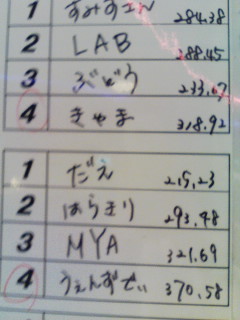 1 すみすエル 284.38
2 LAB 288.45
3 ぶどう 233.67
4 きゃま 318.92
1 だえ 215.23
2 はらきり 293.48
3 MYA 321.69
4 うぇんずでぃ 370.58